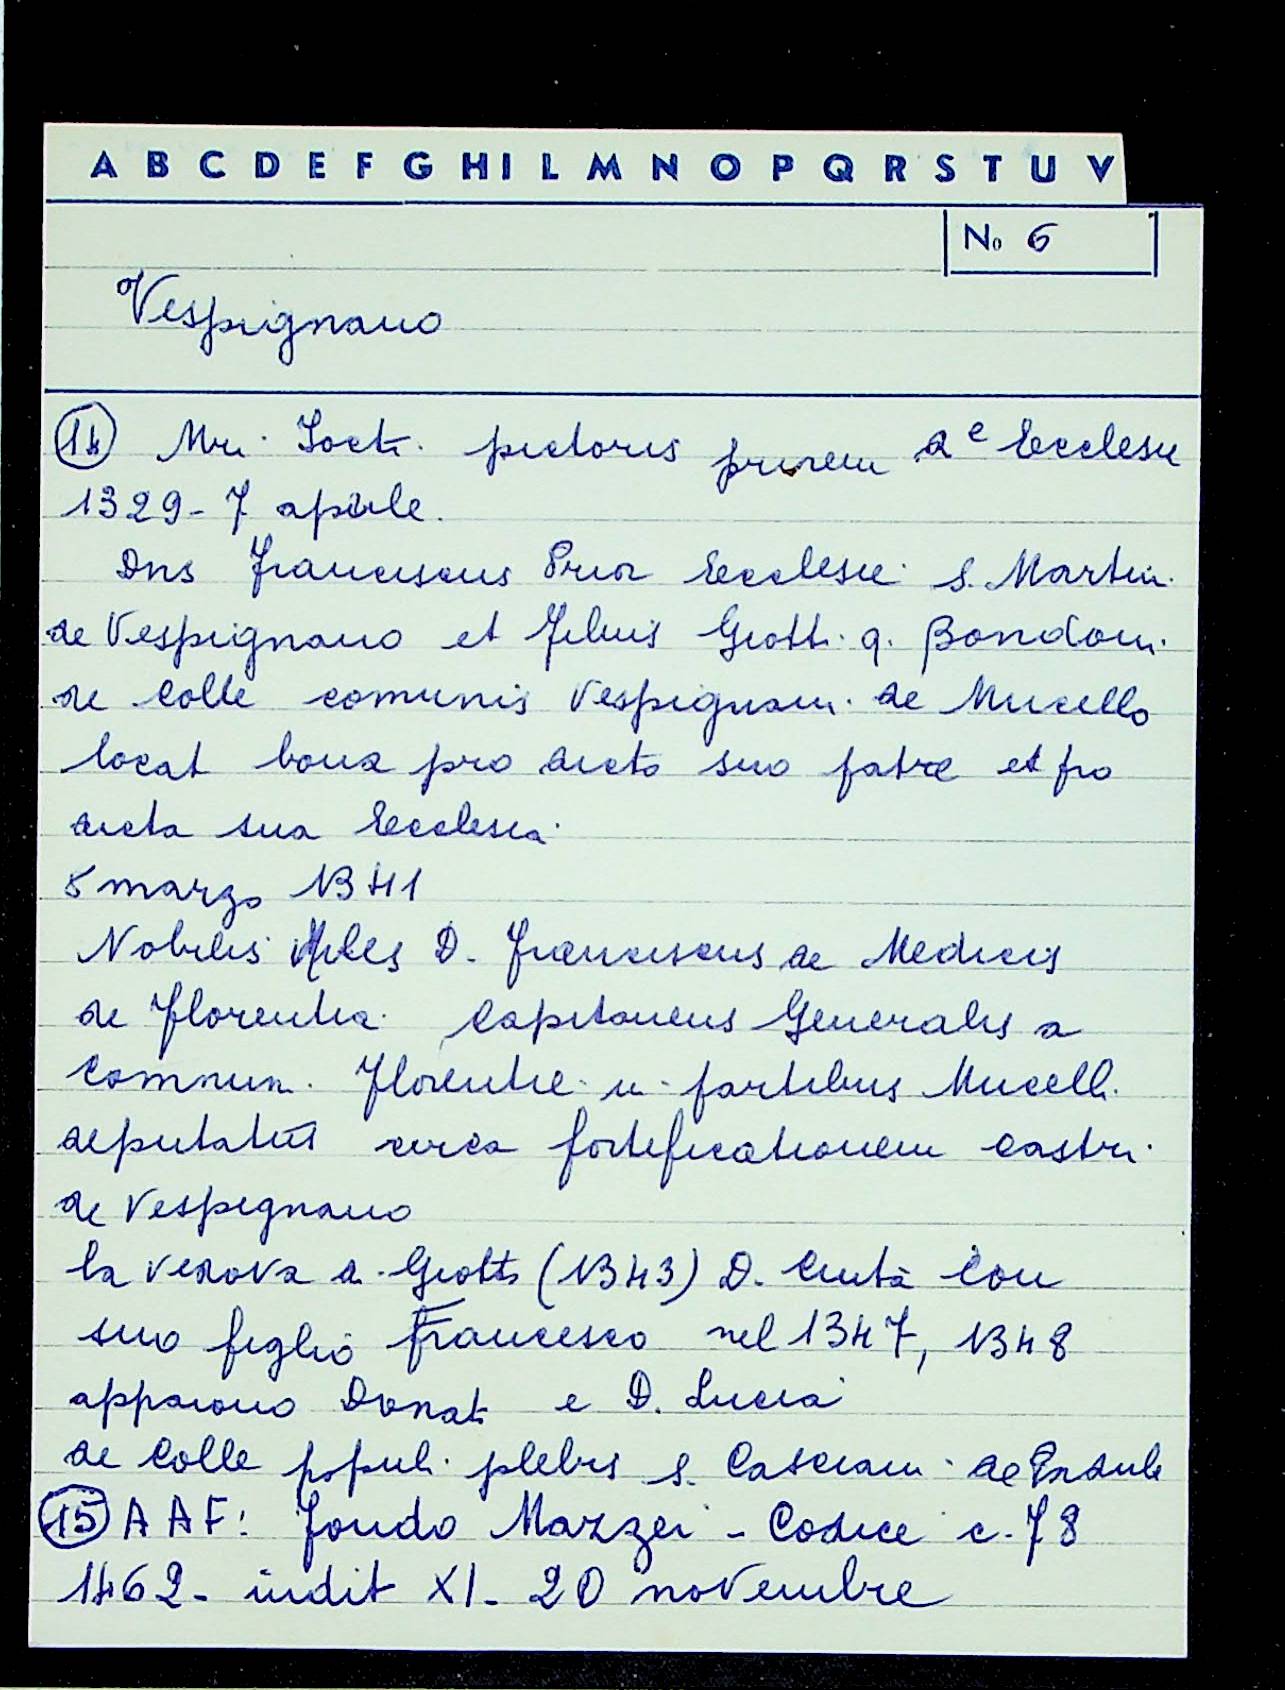 A B C D E F G H I L M N O P Q R S T U V
No 6
Vespignano
14 Mri. Jocti. pictoris d e Ecclesie
1329 - 7 aprile.
Dns Franciscus Prior Ecclesie S. Martini
de Vespignano et filius Giotti q. Bondoni
de Colle comunis Vespignani de Mucello
locat bona pro dicto suo patre et pro
dicta sua Ecclesia
8 marzo 1341
Nobilis Miles D. Franciscus de Medicis
de Florentia Capitaneus Generalis a
Commun. Florentie in partibus Mucelli
deputatus circa fortificationem castri
de Vespignano
la vedova di Giotto (1343) D. Ciuta con
suo figlio Francesco nel 1347, 1348
appaiono Donati e D. Lucia
de Colle populi plebis S. Casciani de
15 A A F: fondo Mazzei - Codice c. 78
1462 - indit XI - 20 novembre